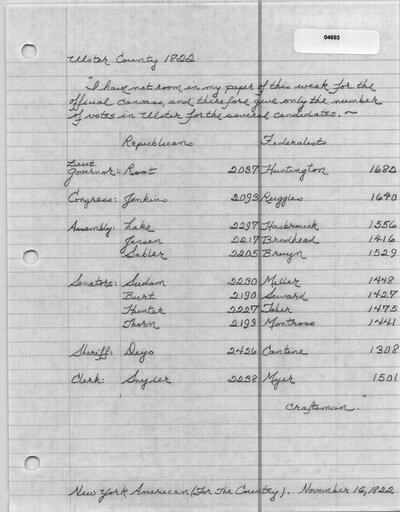 04693
Ulster County 1822
"I have not room in my paper of this week for the
official canvass, and therefore give only the number
of votes in Ulster for the several candidates. ~
Republicans Federalists
Lieut.
Governor: Root 2037 Huntington 1682
Congress: Jenkins 2093 Ruggles 1640
Assembly: Lake 2297 Hasbrouck 1556
Jansen 2217 Brodhead 1416
Sabler 2205 Bruyn 1529
Senators: Sudam 2230 Miller 1448
Burt 2190 Seward 1427
Hunter 2227 Tiber 1475
Thorn 2193 Montross 1441
Sheriff: Deyo 2426 Cantine 1308
Clerk: Snyder 2258 Myer 1501
Craftsman."
New York American (For The Country). November 16, 1822